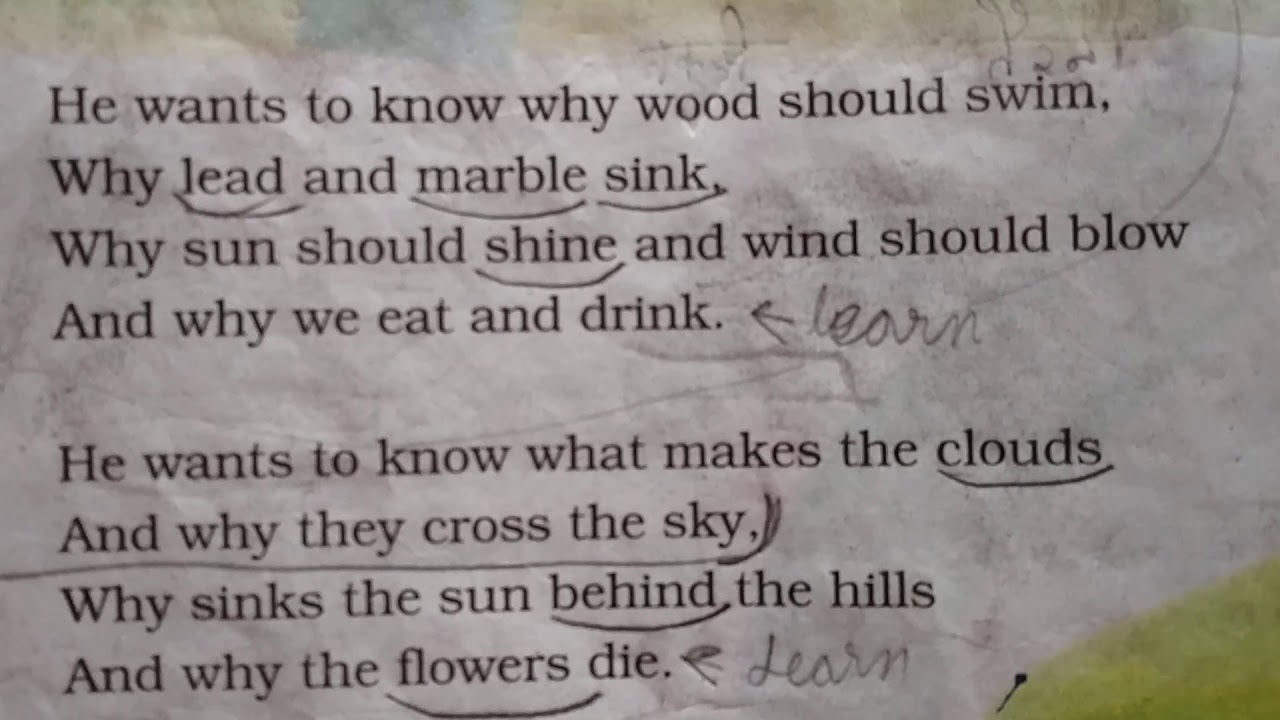 He wants to know why wood should swim,
Why lead and marble sink,
Why sun should shine and wind should blow
And why we eat and drink. ← learn
He wants to know what makes the clouds
And why they cross the sky,
Why sinks the sun behind the hills
And why the flowers die. ← Learn